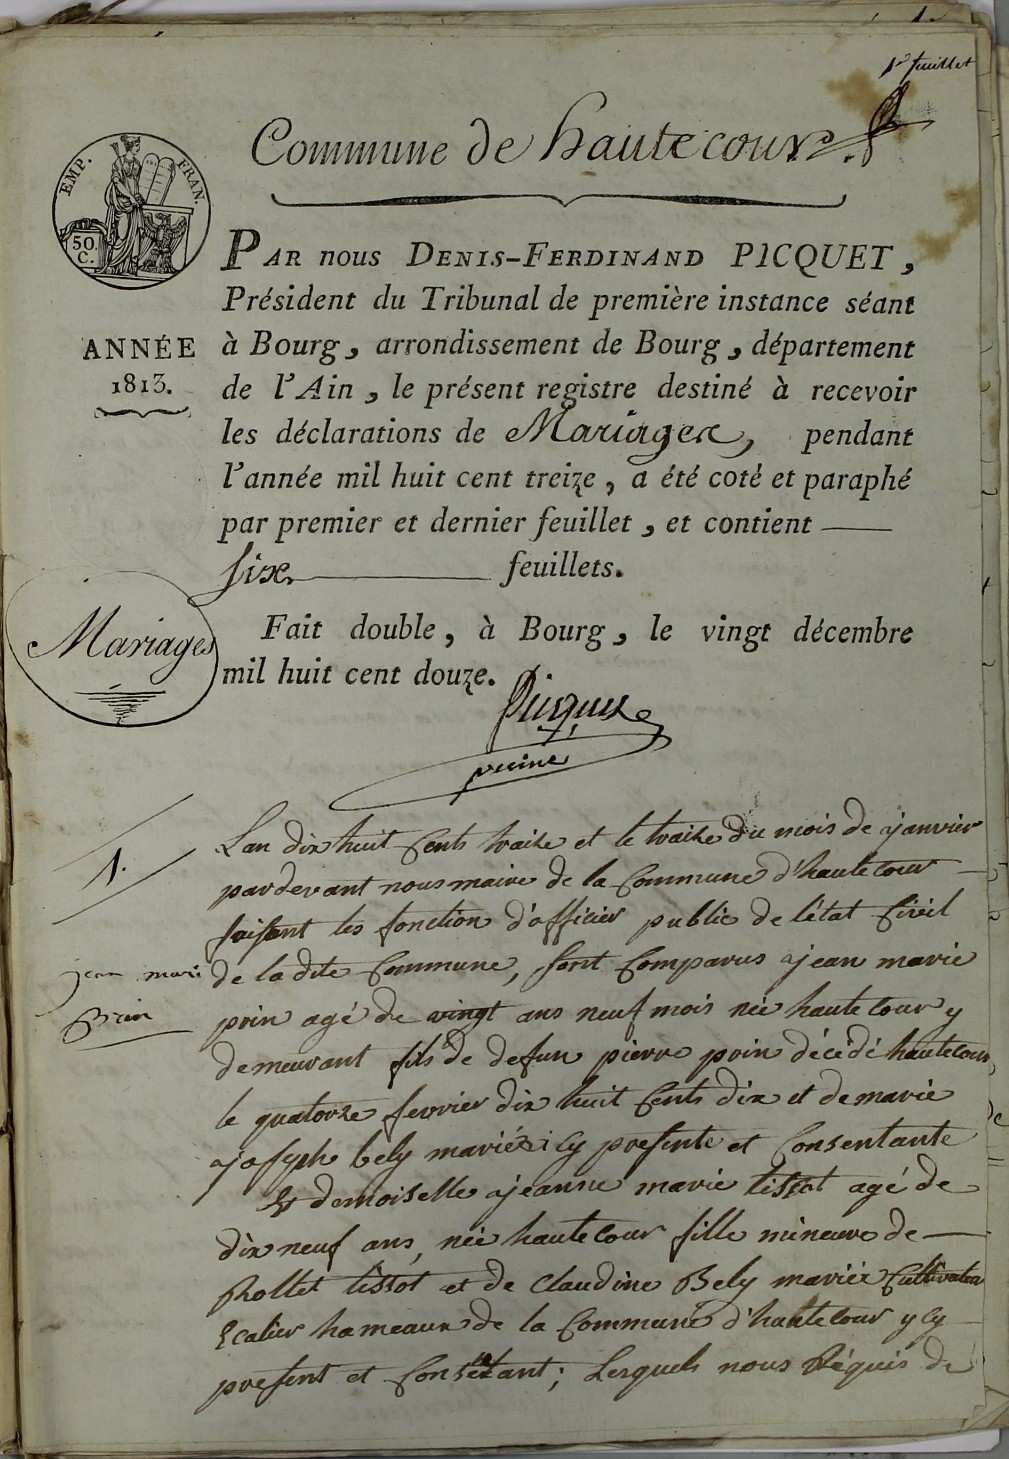 1r feuillet
Commune de hautecour.
EMP. FRAN.
50. C.
ANNÉE
1813.
PAR nous DENIS-FERDINAND PICQUET,
Président du Tribunal de première instance séant
à Bourg, arrondissement de Bourg, département
de l'Ain, le présent registre destiné à recevoir
les déclarations de Mariages, pendant
l'année mil huit cent treize, a été coté et paraphé
par premier et dernier feuillet, et contient
six feuillets.
Mariages
Fait double, à Bourg, le vingt décembre
mil huit cent douze.
Picquet
1.
jean mari
prin
Lan dix huit Cents traize et le traize du mois de janvier
pardevant nous maire de la Commune d'hautecour
faisant les fonction d'officier public de létat Civil
de la dite Commune, sont Comparus jean marie
prin agé de vingt ans neuf mois née hautecour y
demeurant fils de defun pierre prin décédé hautecour
le quatorze fevrier dix huit Cents dix et de marie
josyph bely mariéz icy presente et Consentante
Et demoiselle jeanne marie tissot agé de
dix neuf ans, née hautecour fille mineure de
Rollet tissot et de Claudine Bely mariéz Cultivateur
hameaux de la Commune d'hautecour y Cy
present et Consetant; Lesquels nous Réquis de